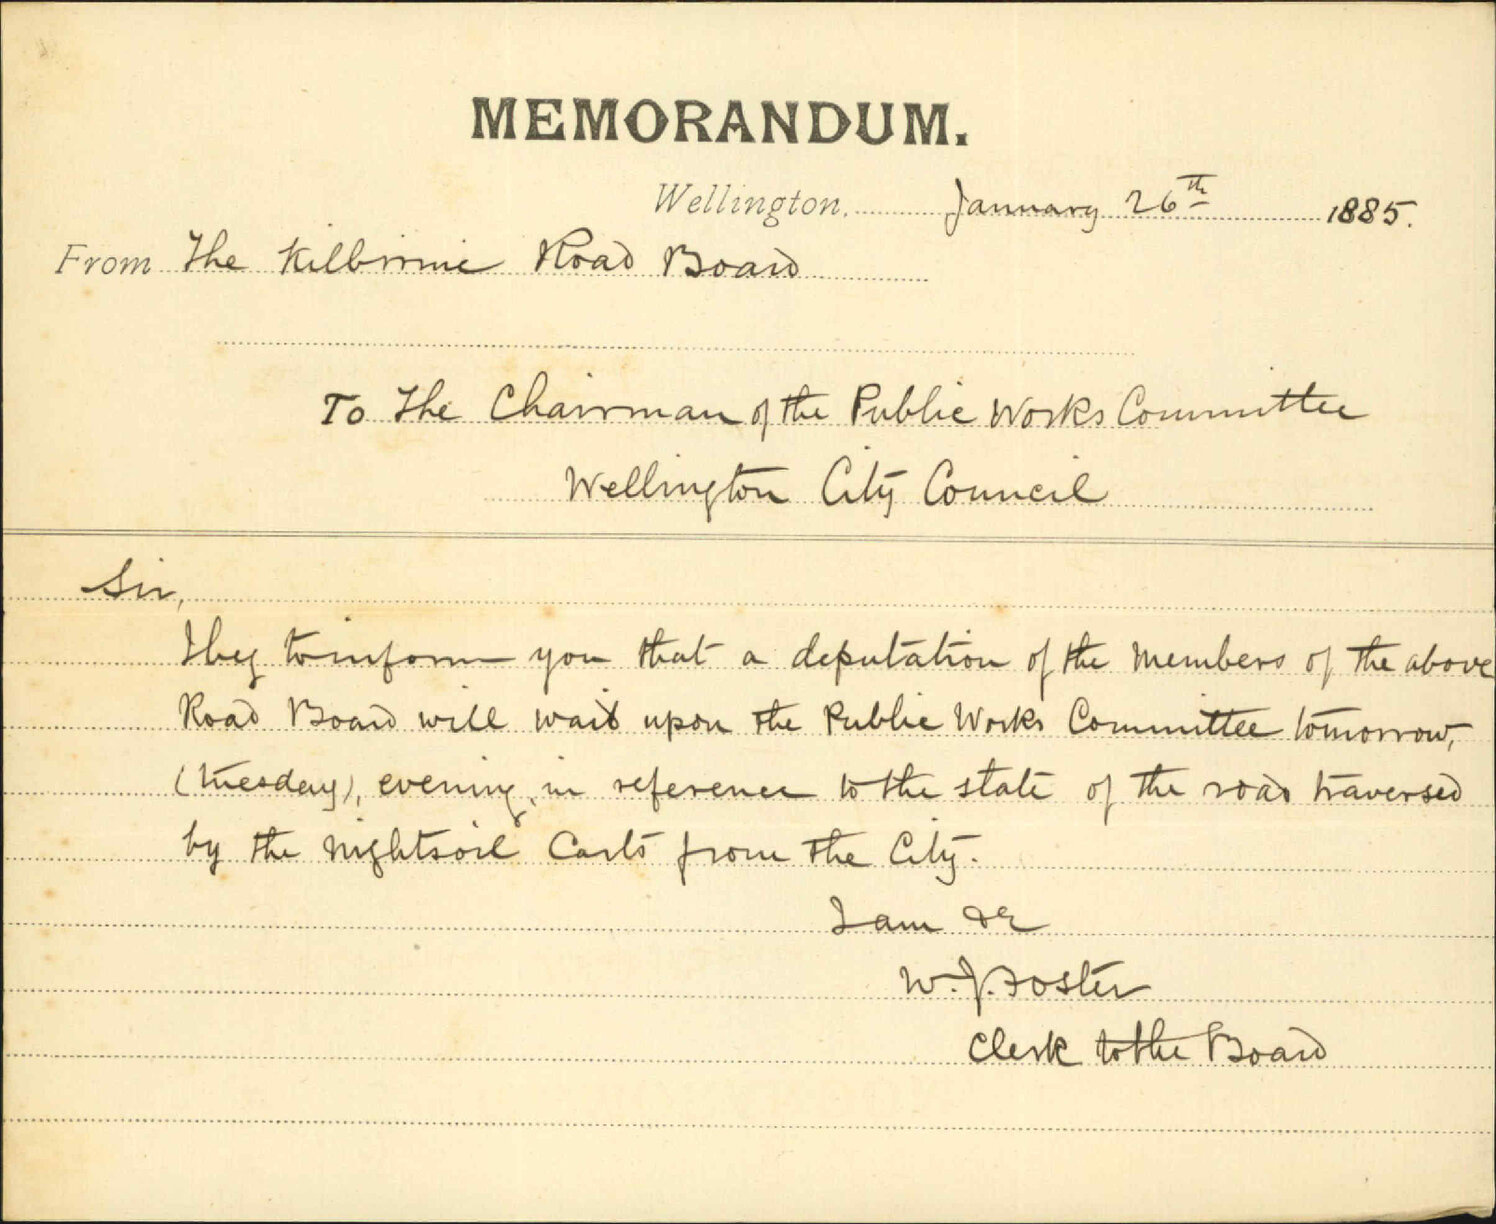 MEMORANDUM.
Wellington, January 26th 1885.
From The Kilbirnie Road Board
To The Chairman of the Public Works Committee
Wellington City Council
Sir,
I beg to inform you that a deputation of the Members of the above
Road Board will wait upon the Public Works Committee tomorrow,
(Tuesday), evening, in reference to the state of the road traversed
by the nightsoil Carts from the City.
I am &c
W. J. Foster
Clerk to the Board